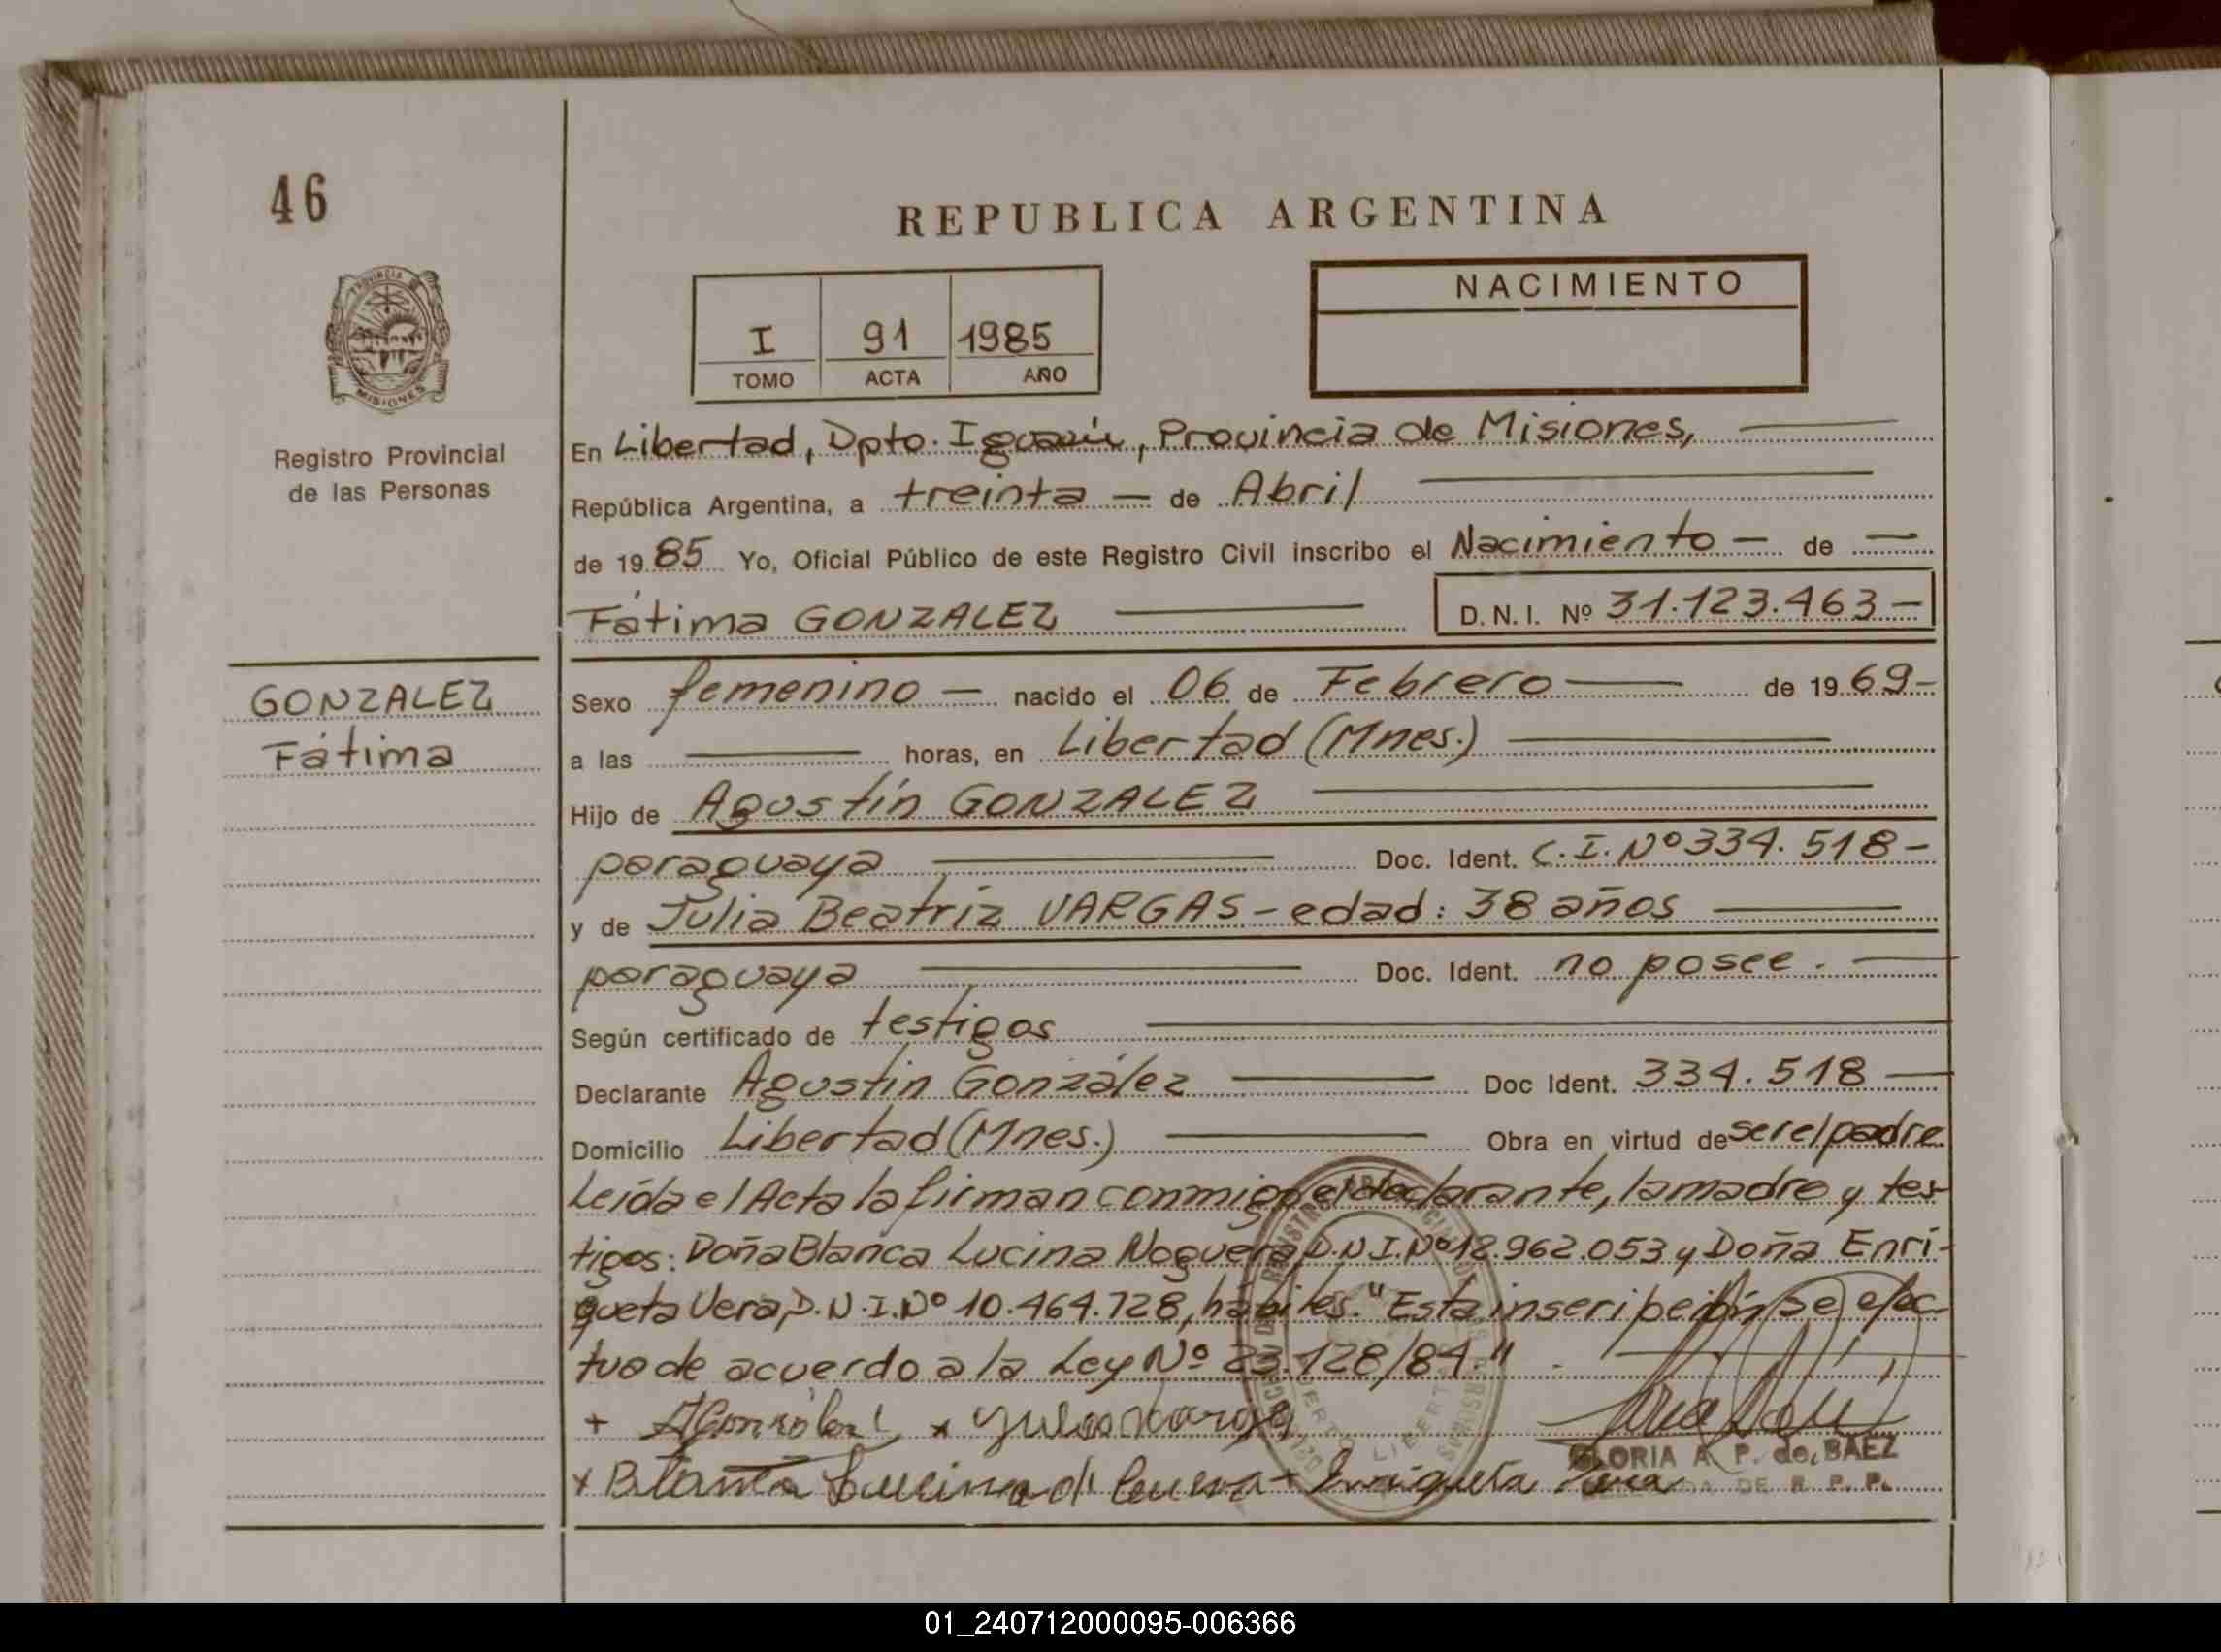 46
REPUBLICA ARGENTINA
PROVINCIA D
MISIONES
NACIMIENTO
I 91 1985
TOMO ACTA AÑO
Registro Provincial
de las Personas
En Libertad, Dpto. Iguazú, Provincia de Misiones,
República Argentina, a treinta — de Abril
de 1985 Yo, Oficial Público de este Registro Civil inscribo el Nacimiento — de —
Fátima GONZALEZ D.N.I. Nº 31.123.463 —
GONZALEZ
Fátima
Sexo femenino — nacido el 06 de Febrero — de 1969 -
a las — horas, en Libertad (Mnes.)
Hijo de Agustín GONZALEZ
paraguaya Doc. Ident. C.I. Nº 334.518 -
y de Julia Beatriz VARGAS - edad: 38 años
paraguaya Doc. Ident. no posee.
Según certificado de testigos
Declarante Agustín González Doc Ident. 334.518
Domicilio Libertad (Mnes.) Obra en virtud de ser el padre
Leída el Acta la firman conmigo el declarante, la madre y tes-
tigos: Doña Blanca Lucina Noguera, D.N.I. Nº 12.962.053 y Doña Enri-
queta Vera, D.N.I. Nº 10.464.728, hábiles. "Esta inscripción se efec-
tua de acuerdo a la Ley Nº 23.128/84."
+ AGonzález x Julia Vargas
GLORIA A. P. de BAEZ
x Blanca Lucina + Enriqueta Vera
DE R. P. P.
01_240712000095-006366